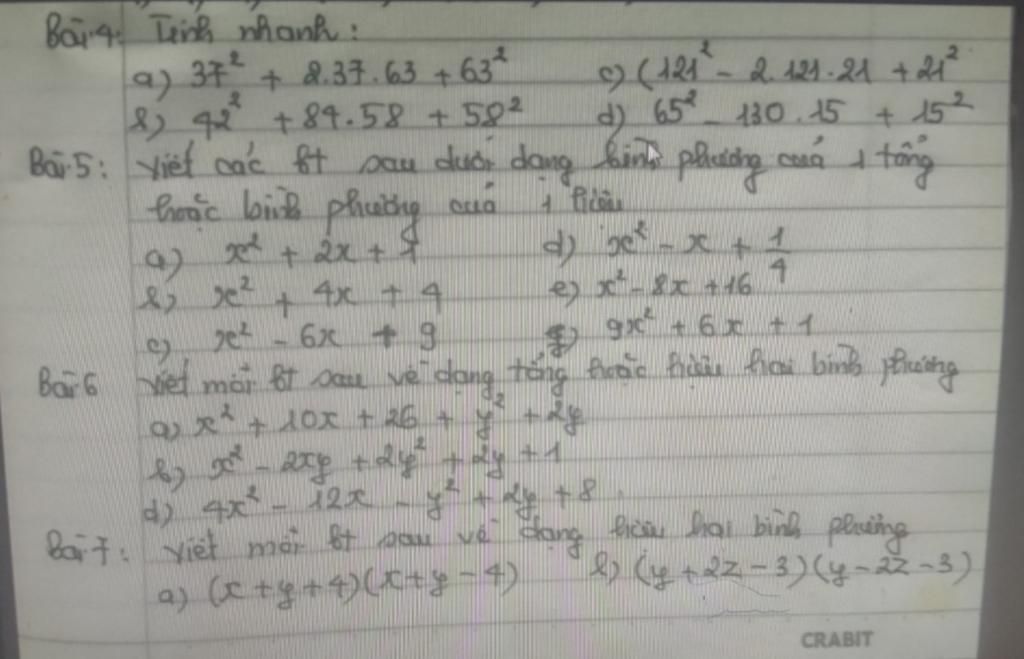 Bài 4: Tính nhanh:
a) 37² + 2.37.63 + 63² c) (121² - 2.121.21 + 21²
b) 42² + 84.58 + 58² d) 65² - 130.15 + 15²
Bài 5: Viết các bt sau dưới dạng bình phương của 1 tổng
hoặc bình phương của 1 hiệu
a) x² + 2x + 1 d) x² - x + 1/4
b) x² + 4x + 4 e) x² - 8x + 16
c) x² - 6x + 9 g) 9x² + 6x + 1
Bài 6 Viết mỗi bt sau về dạng tổng hoặc hiệu hai bình phương
a) x² + 10x + 26 + y² + 2y
b) x² - 2xy + 2y² + 2y + 1
d) 4x² - 12x - y² + 2y + 8
Bài 7: Viết mỗi bt sau về dạng hiệu hai bình phương
a) (x + y + 4)(x + y - 4) b) (y + 2z - 3)(y - 2z - 3)
CRABIT